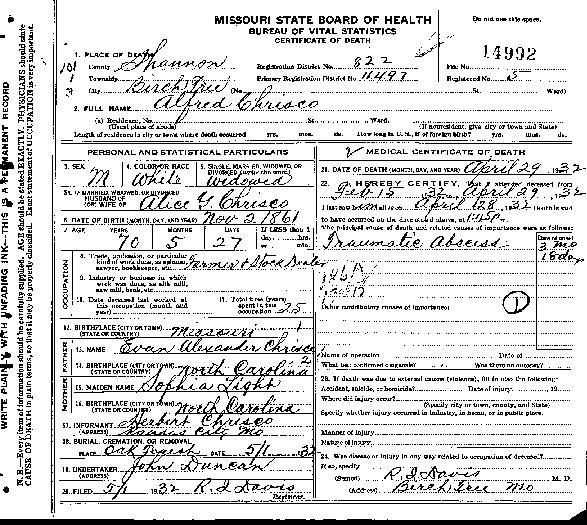 MISSOURI STATE BOARD OF HEALTH
BUREAU OF VITAL STATISTICS
CERTIFICATE OF DEATH
Do not use this space.
14992
1. PLACE OF DEATH
County Shannon Registration District No. 822 File No.
Township Primary Registration District No. 4497 Registered No.
City Birch Tree (No. St. Ward)
2. FULL NAME Alfred Chrisco
(a) Residence, No. St. Ward.
(Usual place of abode) (If nonresident, give city or town and State)
Length of residence in city or town where death occurred yrs. mos. ds. How long in U. S., if of foreign birth? yrs. mos. ds.
PERSONAL AND STATISTICAL PARTICULARS
3. SEX M
4. COLOR OR RACE White
5. SINGLE, MARRIED, WIDOWED, OR DIVORCED (write the word) Widowed
5A. IF MARRIED, WIDOWED, OR DIVORCED HUSBAND OF (OR) WIFE OF Alice G Chrisco
6. DATE OF BIRTH (MONTH, DAY, AND YEAR) Nov 2 1861
7. AGE YEARS MONTHS DAYS If LESS than 1
70 5 27 day, hrs. or min.
OCCUPATION
8. Trade, profession, or particular kind of work done, as spinner, sawyer, bookkeeper, etc. Farmer & Stock Dealer
9. Industry or business in which work was done, as silk mill, saw mill, bank, etc.
10. Date deceased last worked at this occupation (month and year)
11. Total time (years) spent in this occupation 25
12. BIRTHPLACE (CITY OR TOWN) Missouri
(STATE OR COUNTRY)
FATHER
13. NAME Evan Alexander Chrisco
14. BIRTHPLACE (CITY OR TOWN) North Carolina
(STATE OR COUNTRY)
MOTHER
15. MAIDEN NAME Sophia Light
16. BIRTHPLACE (CITY OR TOWN) North Carolina
(STATE OR COUNTRY)
17. INFORMANT Herbert Chrisco
(ADDRESS) Kansas City Mo
18. BURIAL, CREMATION, OR REMOVAL
PLACE Oak DATE 5/1 32
19. UNDERTAKER John Duncan
(ADDRESS)
20. FILED 5/1 1932 R. I. Davis
Registrar.
MEDICAL CERTIFICATE OF DEATH
21. DATE OF DEATH (MONTH, DAY, AND YEAR) April 29 1932
22. I HEREBY CERTIFY, That I attended deceased from
Feb 15 April 29, 32
to have occurred on the date stated above, at
The principal cause of death and related causes of importance were as follows:
Traumatic Abscess
Other contributory causes of importance:
Name of operation Date of
What test confirmed diagnosis? Was there an autopsy?
23. If death was due to external causes (violence), fill in also the following:
Accident, suicide, or homicide? Date of injury
Where did injury occur?
(Specify city or town, county, and State)
Specify whether injury occurred in industry, in home, or in public place.
Manner of injury
Nature of injury
24. Was disease or injury in any way related to occupation of deceased?
If so, specify
(Signed) R. I. Davis M. D.
(Address) Birch Tree Mo
WRITE PLAINLY, WITH UNFADING INK—THIS IS A PERMANENT RECORD
N. B.—Every item of information should be carefully supplied. AGE should be stated EXACTLY. PHYSICIANS should state
CAUSE OF DEATH in plain terms, so that it may be properly classified. Exact statement of OCCUPATION is very important.